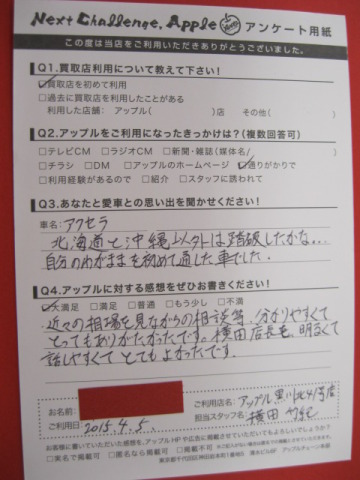 Next Challenge. Apple アンケート用紙
この度は当店をご利用いただきありがとうございました。
Q1.買取店利用について教えて下さい!
☑買取店を初めて利用
□過去に買取店を利用したことがある
利用した店舗: アップル( )店 その他( )
Q2.アップルをご利用になったきっかけは?(複数回答可)
□テレビCM □ラジオCM □新聞・雑誌(媒体名/ )
□チラシ □DM □アップルのホームページ ☑通りがかりで
□利用経験があるので □紹介 □スタッフに誘われて
Q3.あなたと愛車との思い出を聞かせください!
車名: アクセラ
北海道と沖縄以外は踏破したかな...
自分のわがままを初めて通した車でした.
Q4.アップルに対する感想をぜひお書きください!
☑大満足 □満足 □普通 □もう少し □不満
近々の相場を見ながらの相談等、分かりやすくて
とってもありがたかったです。横田店長も、明るくて
話しやすくてとてもよかったです。
お名前:
ご利用店名: アップル黒川北41号店
ご利用日: 2015.4.5.
担当スタッフ名: 横田
お客様に書いていただいた感想を、アップルHPや広告に掲載させていただいてもよろしいでしょうか?
□実名で掲載可 □匿名なら掲載可 □不可